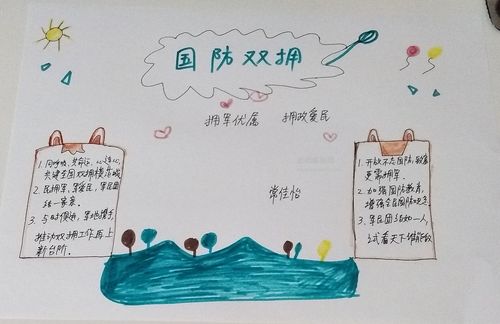 国防双拥
拥军优属 拥政爱民
常佳怡
1. 同呼吸,共命运,心连心,
共建全国双拥模范城
2. 民拥军,军爱民,军民团
结一家亲.
3. 与时俱进,军地携手
推动双拥工作再上
新台阶.
1. 开放不忘国防,致富
更需拥军.
2. 加强国防教育,
增强全民国防观念
3. 军民团结如一人,
试看天下谁能敌